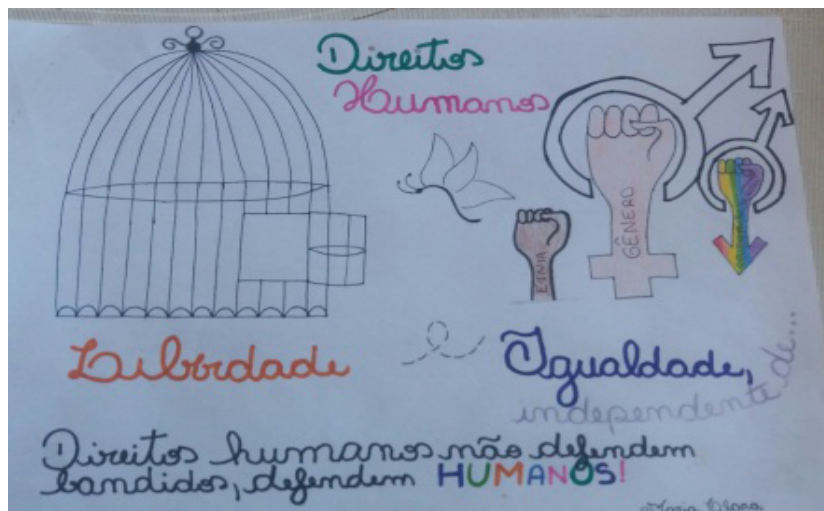 Direitos
Humanos
GÊNERO
ETNIA
Liberdade
Igualdade,
independente de...
Direitos humanos não defendem
bandidos, defendem HUMANOS!
Maria Clara